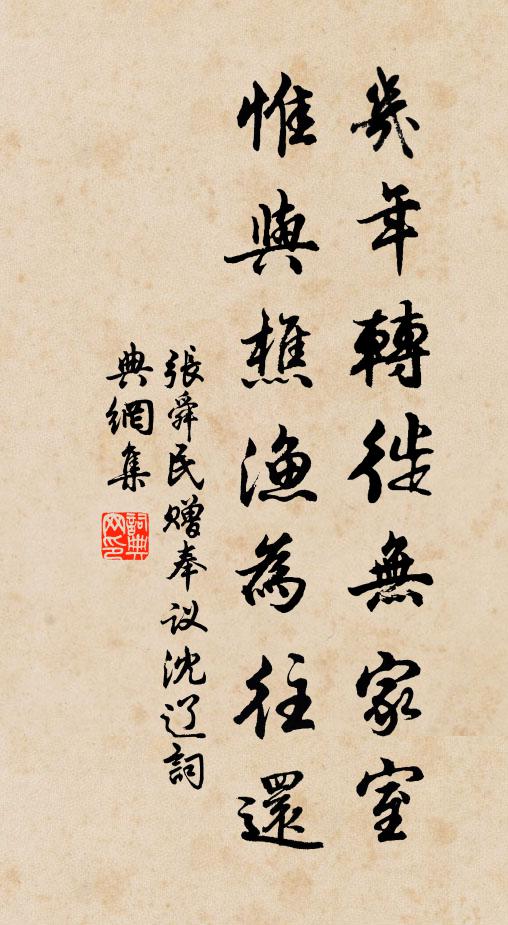 幾年轉徙無家室
惟與樵漁為往還
張舜民贈奉议沈辽詞
典網集
詞典
网印